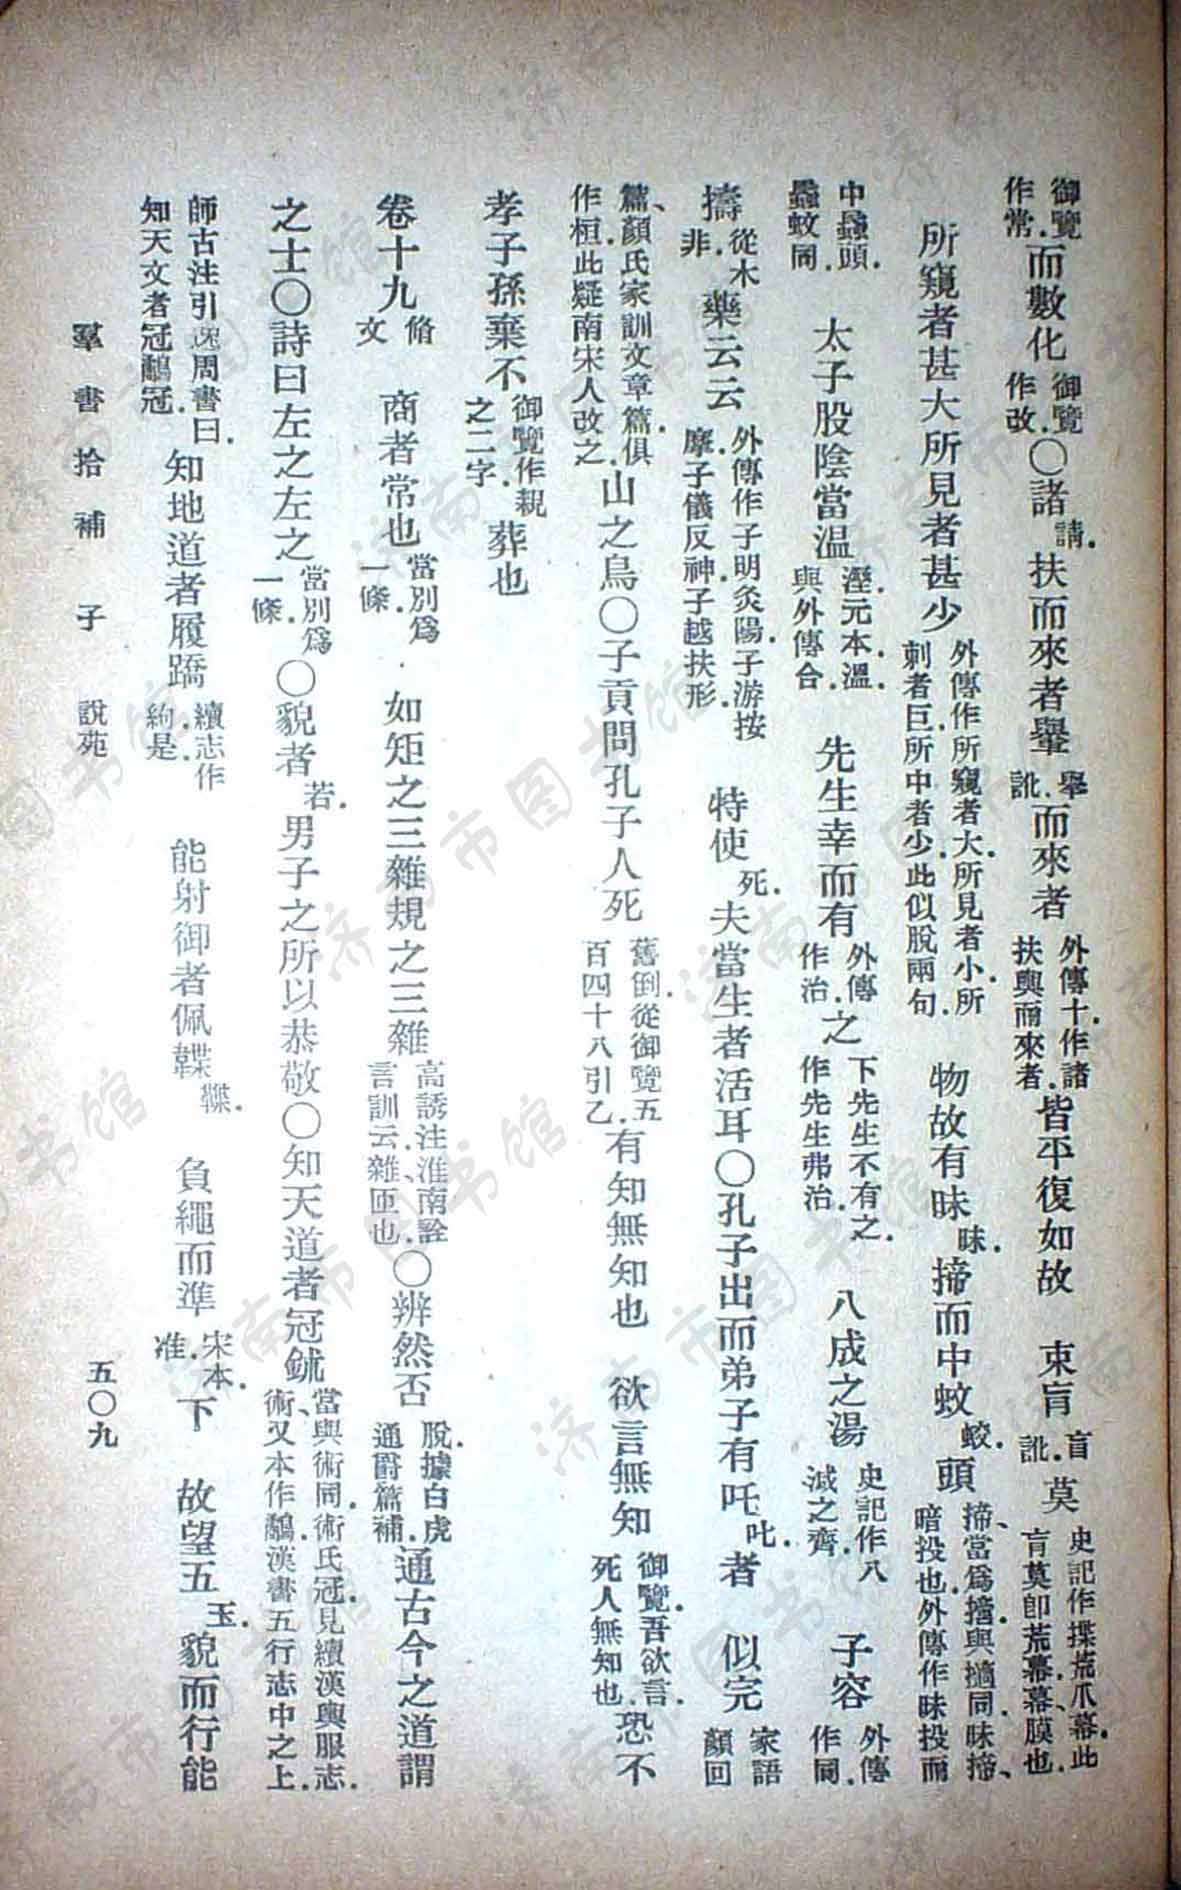 御覽作常.而數化御覽作改.〇諸請.扶而來者轝舉訛.而來者外傳十作諸扶輿而來者.皆平復如故　束肓盲訛.莫史記作揲荒爪幕.此肓莫卽荒幕.幕、膜也.
所窺者甚大所見者甚少外傳作所窺者大.所見者小.所刺者巨.所中者少.此似脫兩句.　物故有昧昧.揥而中蚊蛟.頭揥、當爲擿.與擿同.昧揥、暗投也.外傳作昧投而
中蟁頭.蟁蚊同.　太子股陰當温溼.元本溫.與外傳合.　先生幸而有外傳作治.之下先生不有之.作先生弗治.　八成之湯史記作八減之齊.　子容外傳作同.
擣從木非.藥云云外傳作子明灸陽.子游按摩.子儀反神.子越扶形.　特使死.夫當生者活耳〇孔子出而弟子有吒叱.者　似完家語顏回
篇、顏氏家訓文章篇.俱作桓.此疑南宋人改之.山之鳥〇子貢問孔子人死舊倒.從御覽五百四十八引乙.有知無知也　欲言無知御覽.吾欲言.死人無知也.恐不
孝子孫棄不御覽作親之二字.葬也
卷十九脩文　商者常也當別爲一條.　如矩之三雜規之三雜高誘注淮南詮言訓云.雜、匝也.〇辨然否脫.據白虎通爵篇補.通古今之道謂
之士〇詩曰左之左之當別爲一條.〇貌者若.男子之所以恭敬〇知天道者冠鉥當與術同.術氏冠.見續漢輿服志.術、又本作鷸.漢書五行志中之上.
師古注引逸周書曰.知天文者冠鷸冠.知地道者履蹻續志作絇是.　能射御者佩韘韘.　負繩而準宋本.准.下　故望五玉.貌而行能
羣書拾補　子　說苑　五〇九